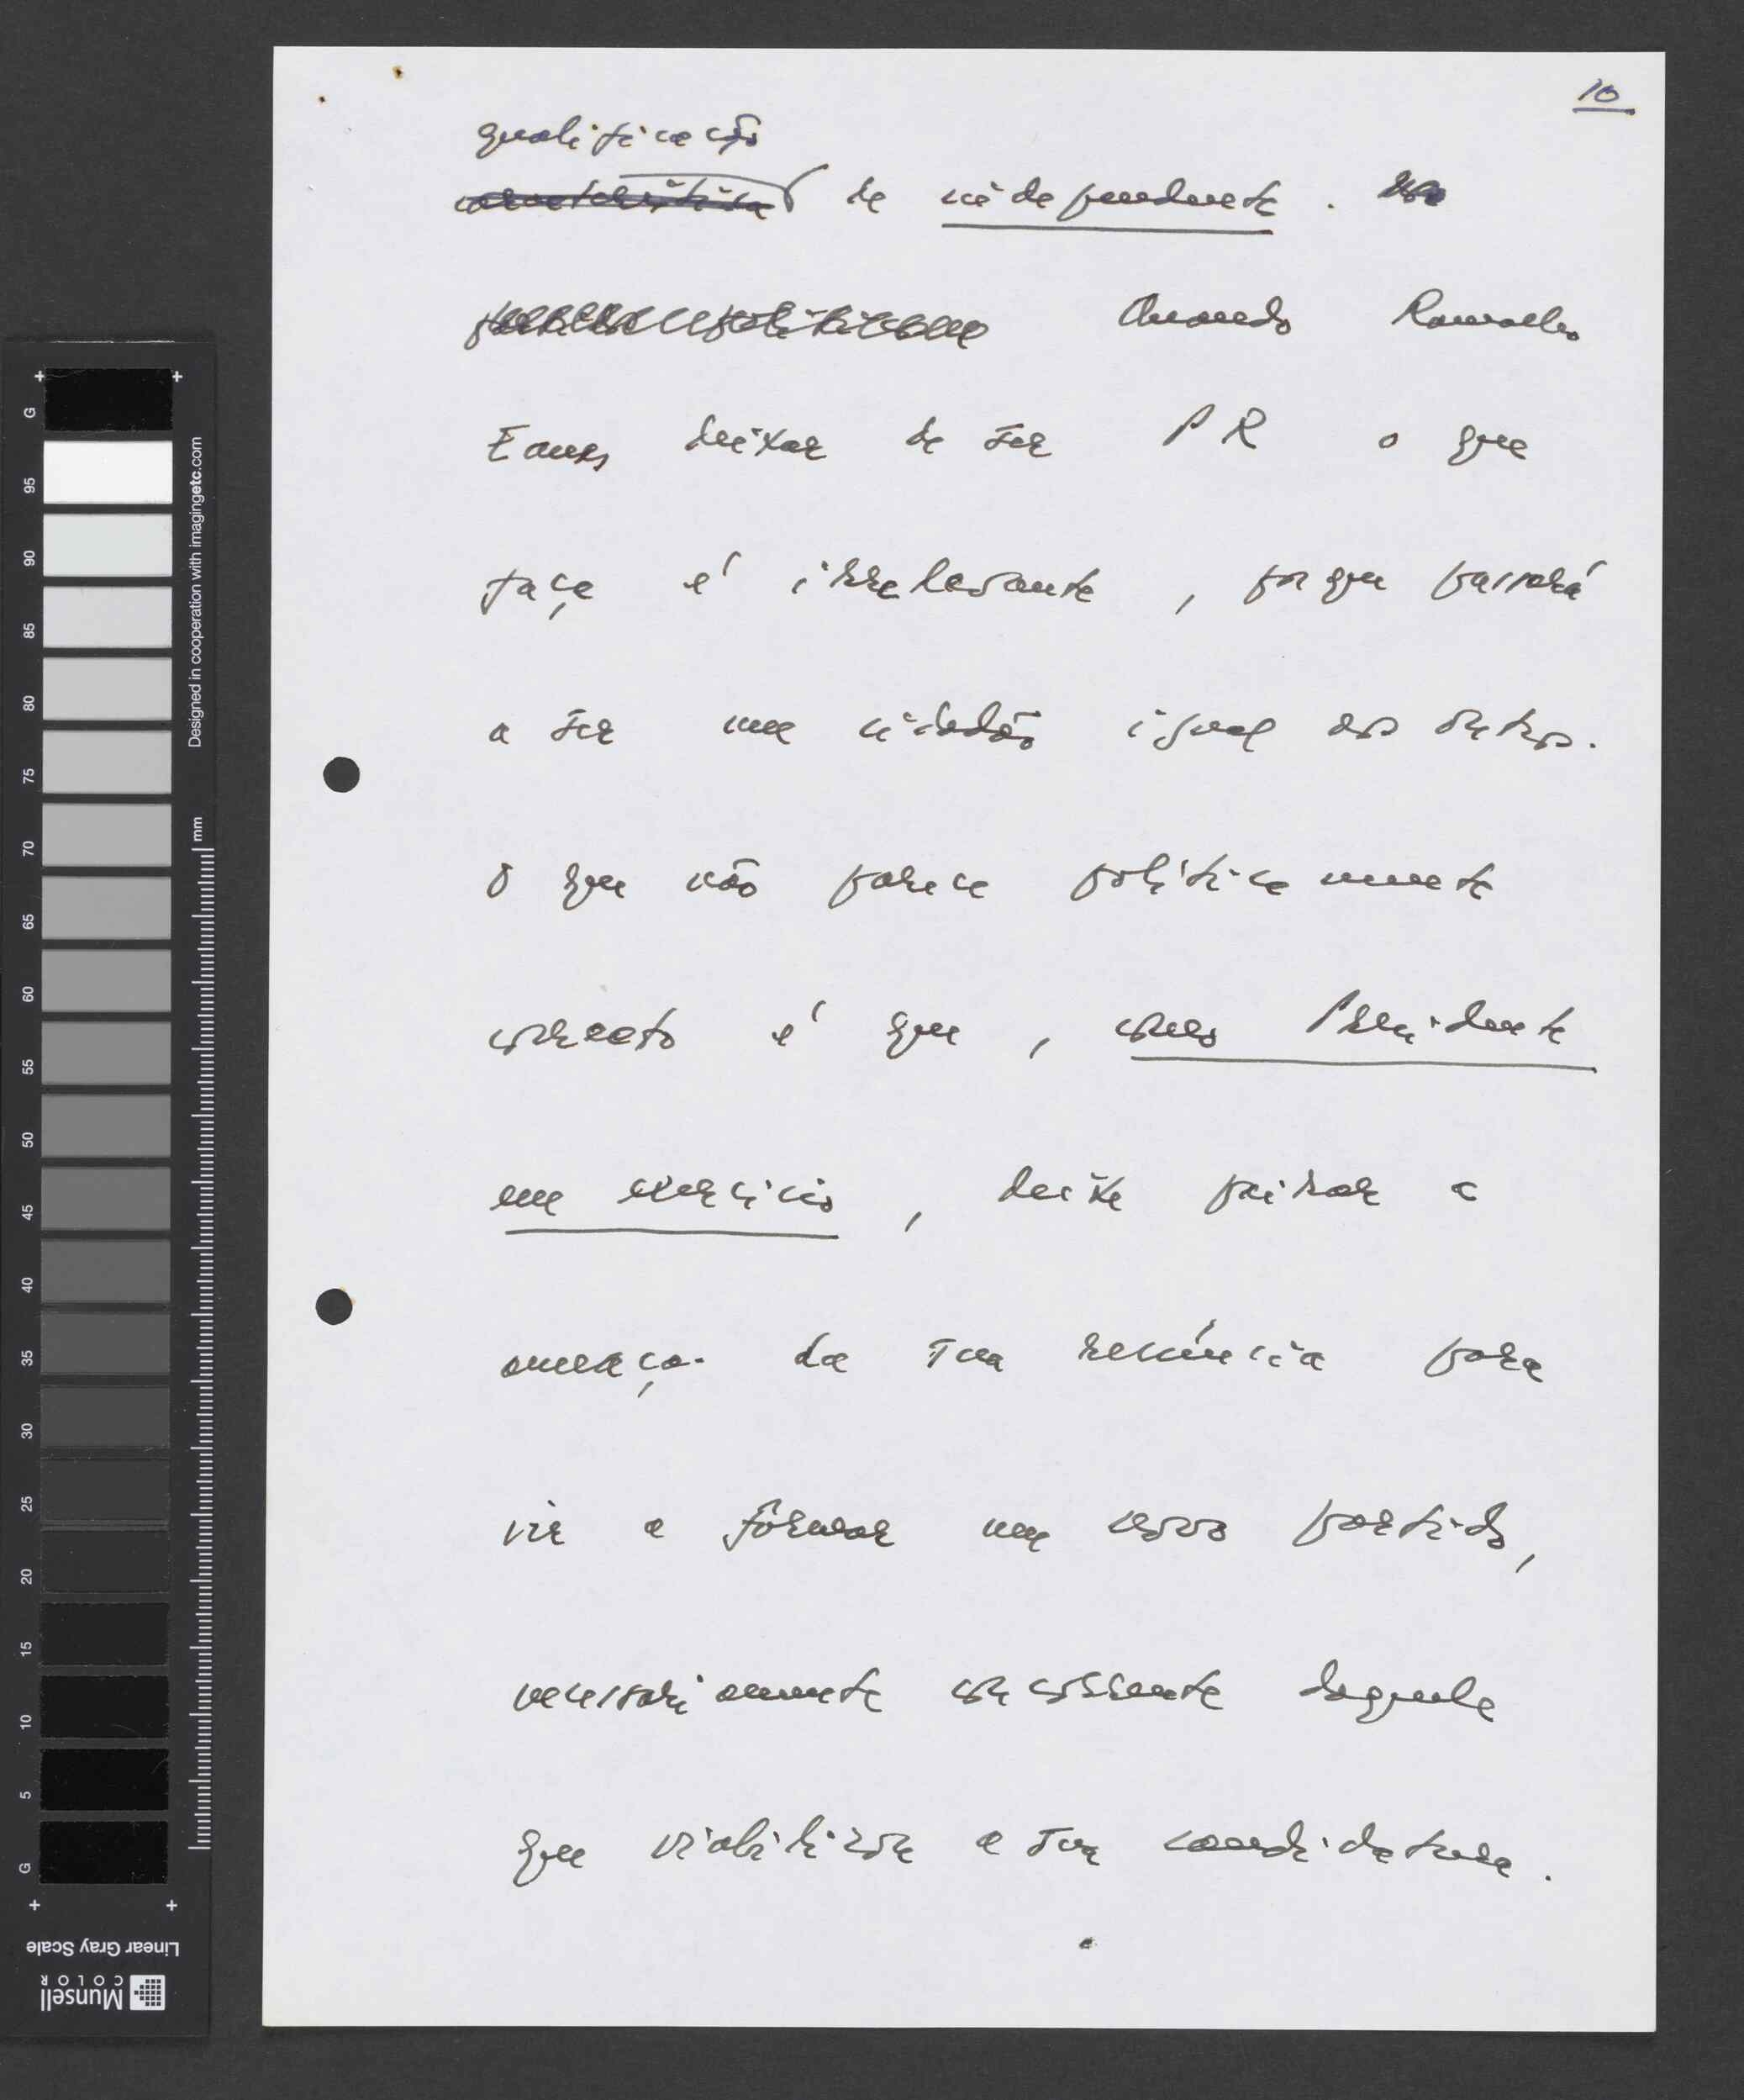 10
qualificação
característica de independente.
Quando Ramalho
Eanes deixar de ser PR o que
faça é irrelevante, porque passará
a ser um cidadão igual aos outros.
O que não parece politicamente
correcto é que, como Presidente
em exercício, deixe pairar a
ameaça da sua renúncia para
vir a formar um novo partido,
necessariamente concorrente daquele
que viabilizou a sua candidatura.
G
95
90
85
80
75
70
65
60
55
50
45
40
35
30
25
20
15
10
5
G
Designed in cooperation with imagingetc.com
mm
Linear Gray Scale
Munsell
COLOR